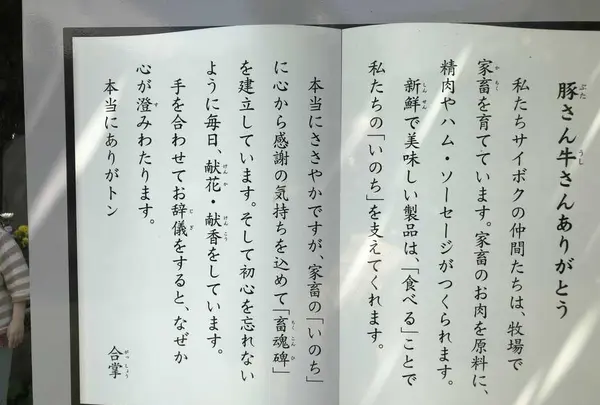 豚さん牛さんありがとう
私たちサイボクの仲間たちは、牧場で
家畜を育てています。家畜のお肉を原料に、
精肉やハム・ソーセージがつくられます。
新鮮で美味しい製品は、「食べる」ことで
私たちの「いのち」を支えてくれます。
本当にささやかですが、家畜の「いのち」
に心から感謝の気持ちを込めて「畜魂碑」
を建立しています。そして初心を忘れない
ように毎日、献花・献香をしています。
手を合わせてお辞儀をすると、なぜか
心が澄みわたります。
本当にありがトン
合掌